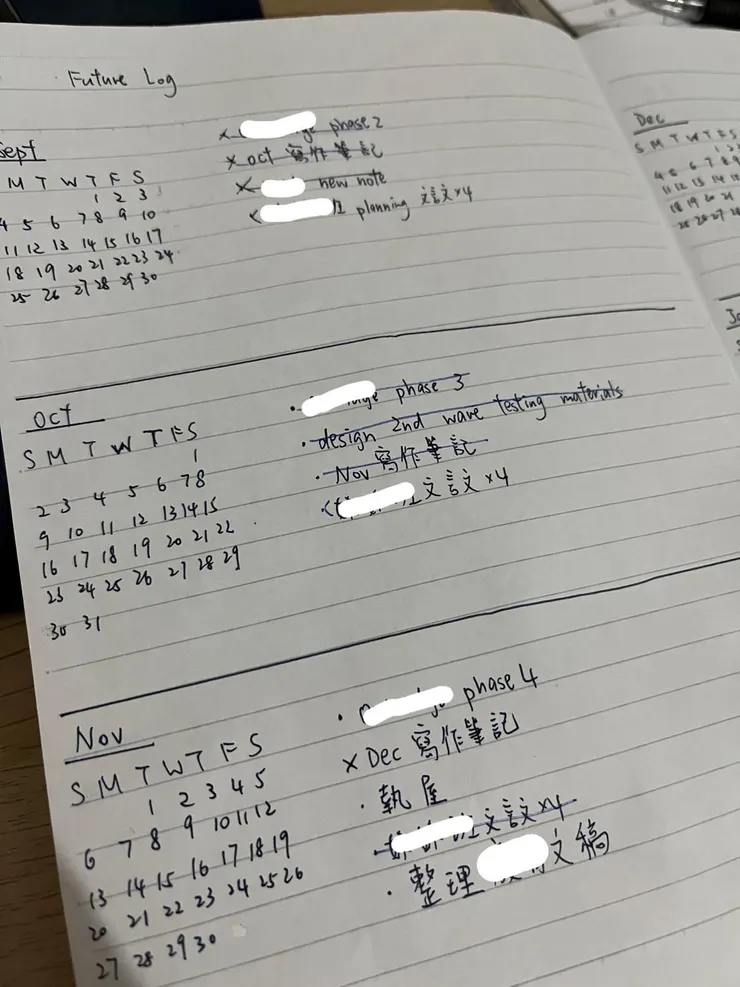 Future Log
Sept
M T W T F S
1 2 3
4 5 6 7 8 9 10
11 12 13 14 15 16 17
18 19 20 21 22 23 24
25 26 27 28 29 30
x phase 2
x oct 寫作筆記
x new note
班 planning 文言文x4
Oct
S M T W T F S
1
2 3 4 5 6 7 8
9 10 11 12 13 14 15
16 17 18 19 20 21 22
23 24 25 26 27 28 29
30 31
• phase 3
• design 2nd wave testing materials
• Nov 寫作筆記
文言文x4
Nov
S M T W T F S
1 2 3 4 5
6 7 8 9 10 11 12
13 14 15 16 17 18 19
20 21 22 23 24 25 26
27 28 29 30
• phase 4
x Dec 寫作筆記
• 執屋
班文言文x4
• 整理 文稿
Dec
S M T W T F S
1 2
4 5 6 7 8 9
11 12 13 14 15
18 19 20 21
25 26 27 28